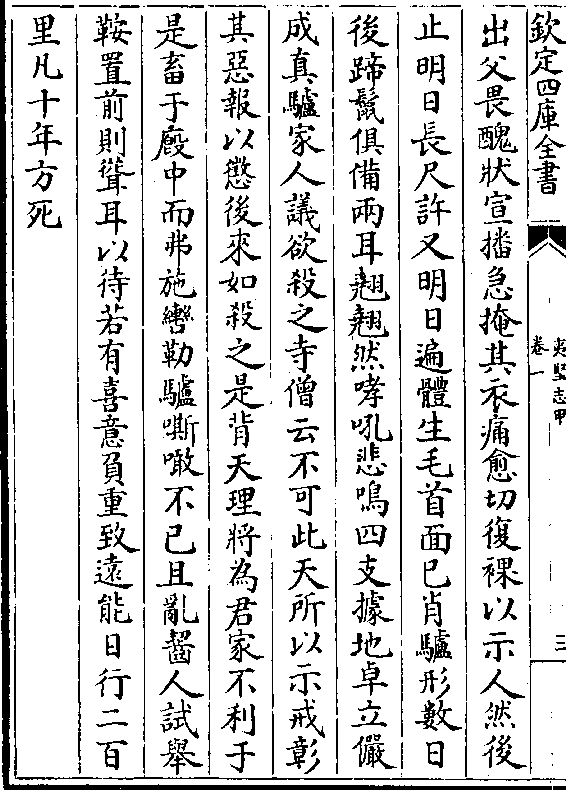 欽定四庫全書
夷堅志甲
卷一
三
出父畏醜狀宣播急掩其衣痛愈切復裸以示人然後
止明日長尺許又明日遍體生毛首面已肖驢形數日
後蹄鬛俱備兩耳翹翹然哮吼悲鳴四支據地卓立儼
成真驢家人議欲殺之寺僧云不可此天所以示戒彰
其惡報以懲後來如殺之是背天理將為君家不利于
是畜于廄中而弗施轡勒驢嘶噉不已且亂齧人試舉
鞍置前則聳耳以待若有喜意負重致遠能日行二百
里凡十年方死